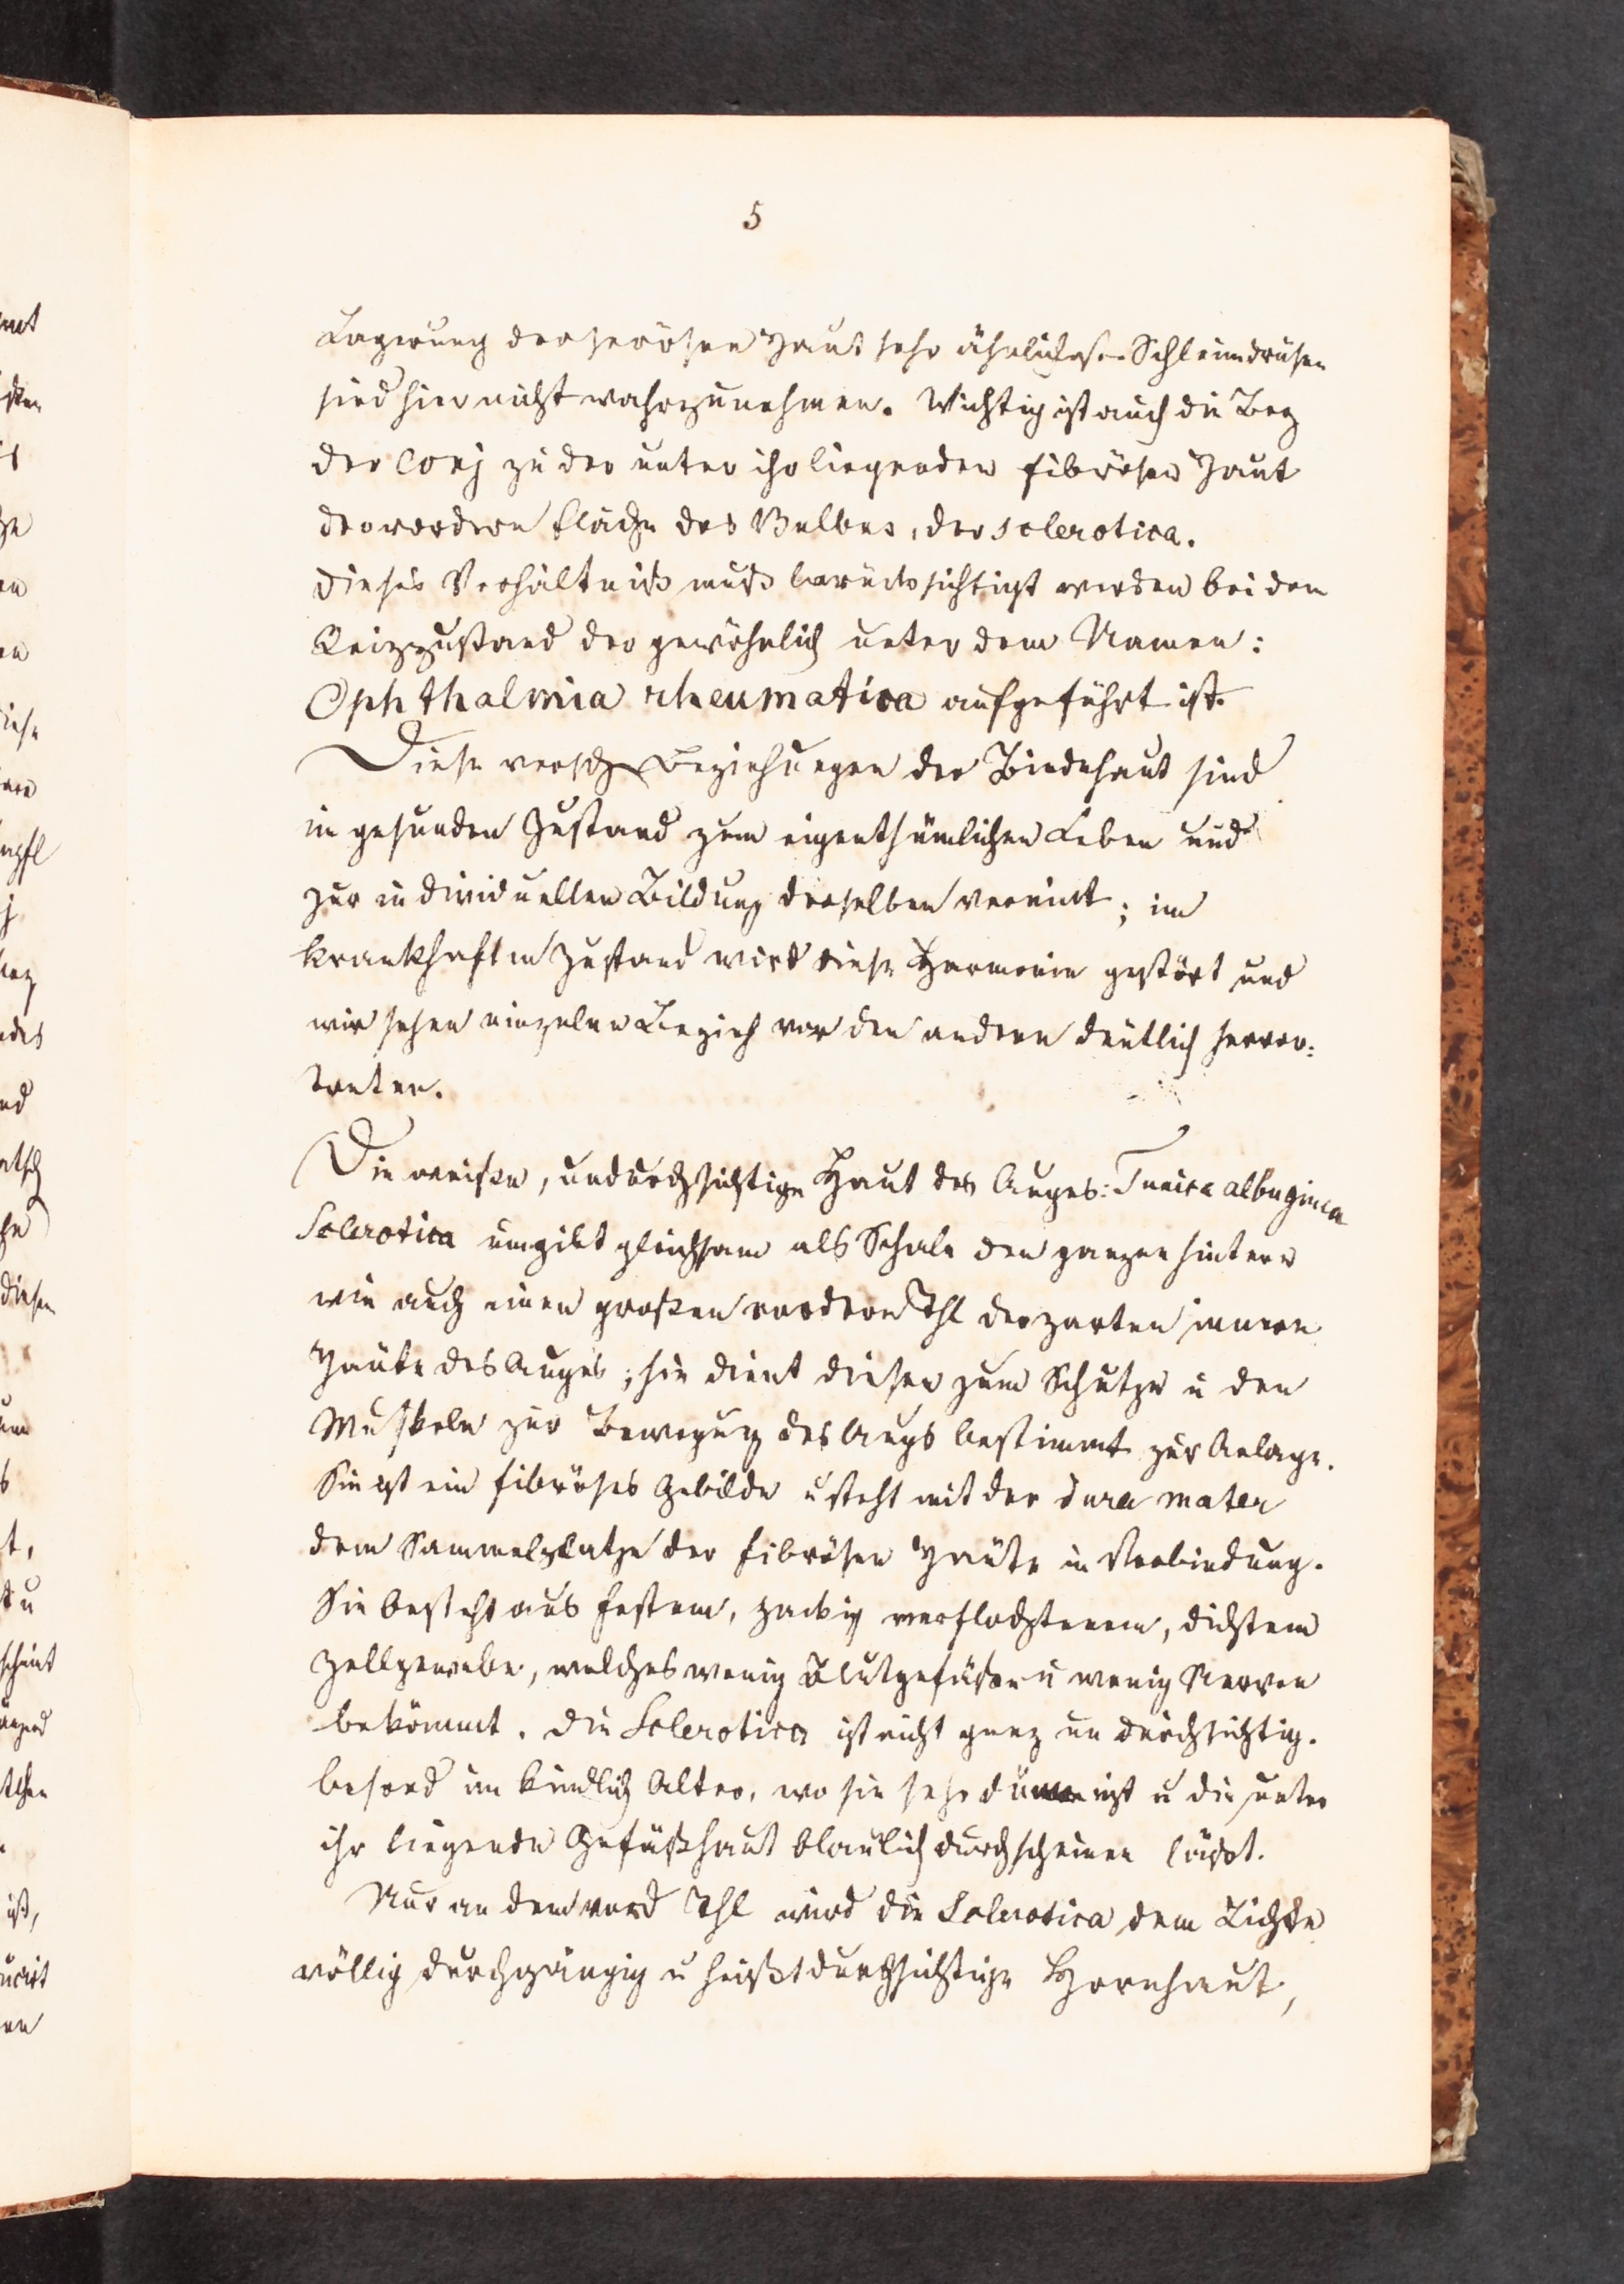 5
Lagerung der serösen Haut sehr ähnlich Schleimdrüsen
sind hier nicht wahrzunehmen. Wichtig ist auch die Bez
der Conj zu der unter ihr liegenden fibrösen Haut
der vordern Fläche des Bulbus, der Sclerotica.
Dieses Verhältniß muß berücksichtigt werden bei dem
Reizzustand der gewöhnlich unter dem Namen:
Ophthalmia rheumatica aufgeführt ist.
Diese versch Beziehungen der Bindehaut sind
in gesunden Zustand zum eigenthümlichen Leben und
zur individuellen Bildung derselben vereint; im
krankhaften Zustand wird diese Harmonie gestört und
wir sehen einzelne Bezieh vor den andern deutlich hervor:
treten.
Die weiße, undurchsichtige Haut des Auges: Tunica albuginea
Sclerotica umgibt gleichsam als Schale den ganzen hintern
wie auch einen großen vordern Thl der zarten innern
Häute des Auges; sie dient diesen zum Schutze u den
Muskeln zur Bewegung des Augs bestimmt zur Anlage.
Sie ist ein fibröses Gebilde u steht mit der dura mater
dem Sammelplatze der fibrösen Häute in Verbindung.
Sie besteht aus festem, zackig verflochtenem, dichtem
Zellgewebe, welches wenig Blutgefäße u wenig Nerven
bekömmt. Die Sclerotica ist nicht ganz undurchsichtig.
besond im kindlich Alter, wo sie sehr dünn ist u die unter
ihr liegende Gefäßhaut blaulich durchscheinen läßt.
Nur an dem vord Thl wird die Sclerotica dem Lichte
völlig durchgängig u heißt durchsichtige Hornhaut,